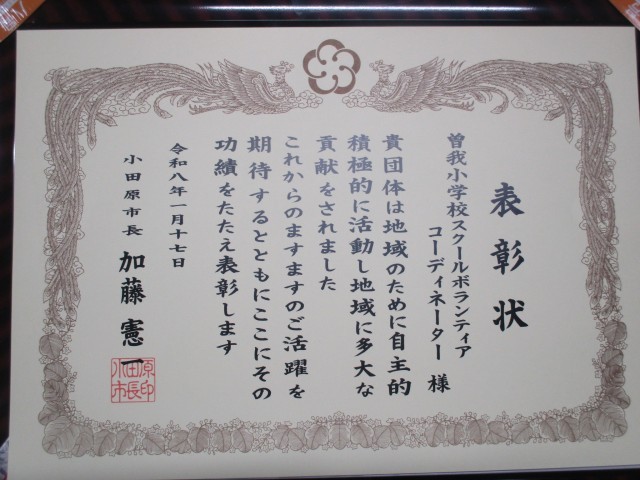 表彰状
曽我小学校スクールボランティア
コーディネーター 様
貴団体は地域のために自主的
積極的に活動し地域に多大な
貢献をされました
これからのますますのご活躍を
期待するとともにここにその
功績をたたえ表彰します
令和八年一月十七日
小田原市長 加藤憲一
小田原市長印